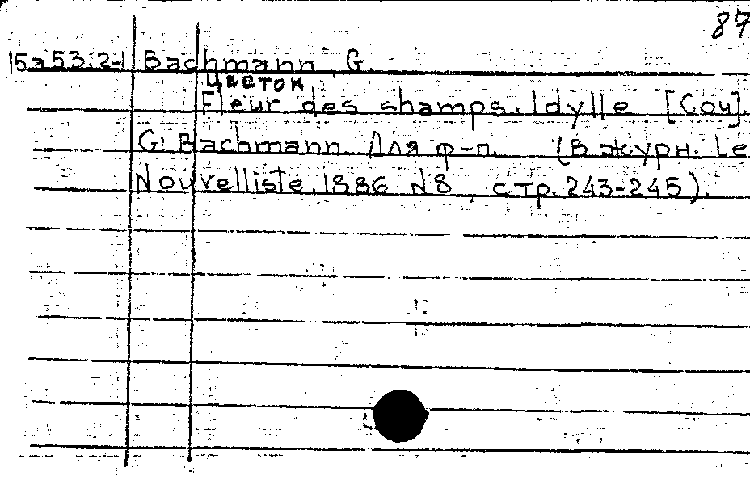 87
15а53.2-1 Bachmann G.
цветок
Fleur des shamps. Idylle [Соч].
G. Bachmann. Для ф-п. (В журн. Le
Nouvelliste, 1886 N8, стр. 243-245).